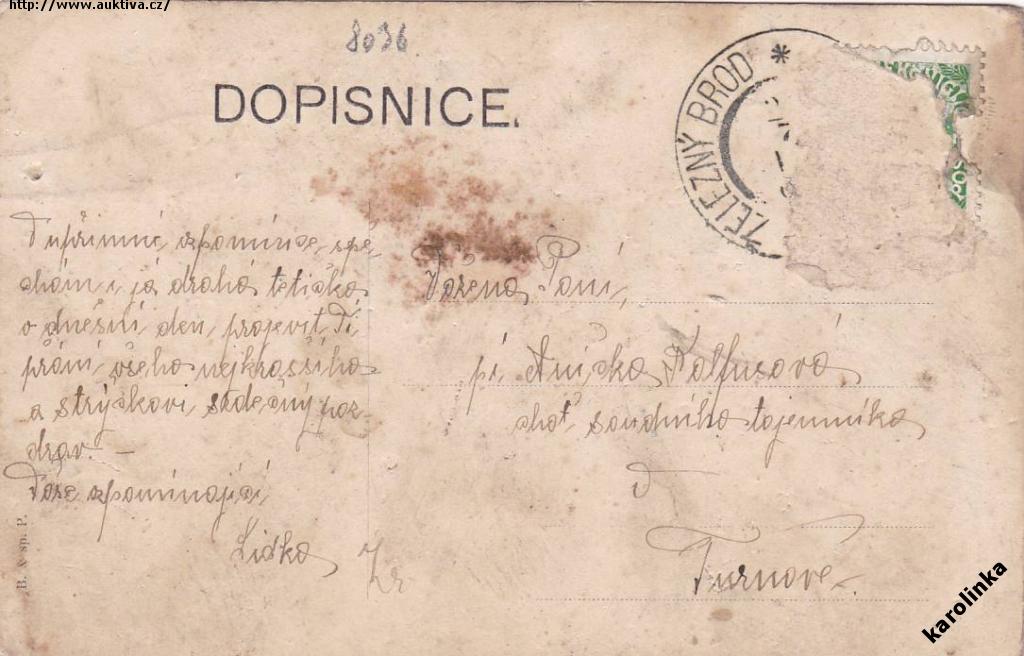 http://www.auktiva.cz/
8036
DOPISNICE.
ŽELEZNÝ BROD *
V upřímné vzpomínce, spě-
chám i já drahá tetičko
v dnešní den, projevit Ti
přání všeho nejkrasšího
a strýčkovi srdečný poz-
drav. –
Vaše vzpomínající
Lidka
Vážená Paní,
pí Anička Kalfusová
choť soudního tajemníka
v
Turnově.
B. & sp. P.
karolinka